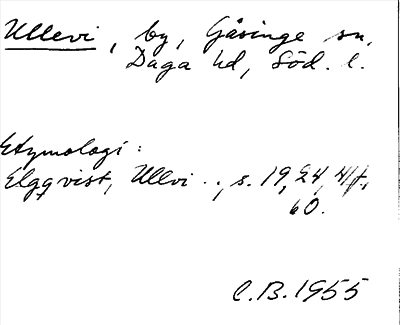 Ullevi, by, Gåsinge sn,
Daga hd, Söd. l.
Etymologi:
Elgqvist, Ullvi.., s. 19, 24, 41f.,
60.
C.B. 1955